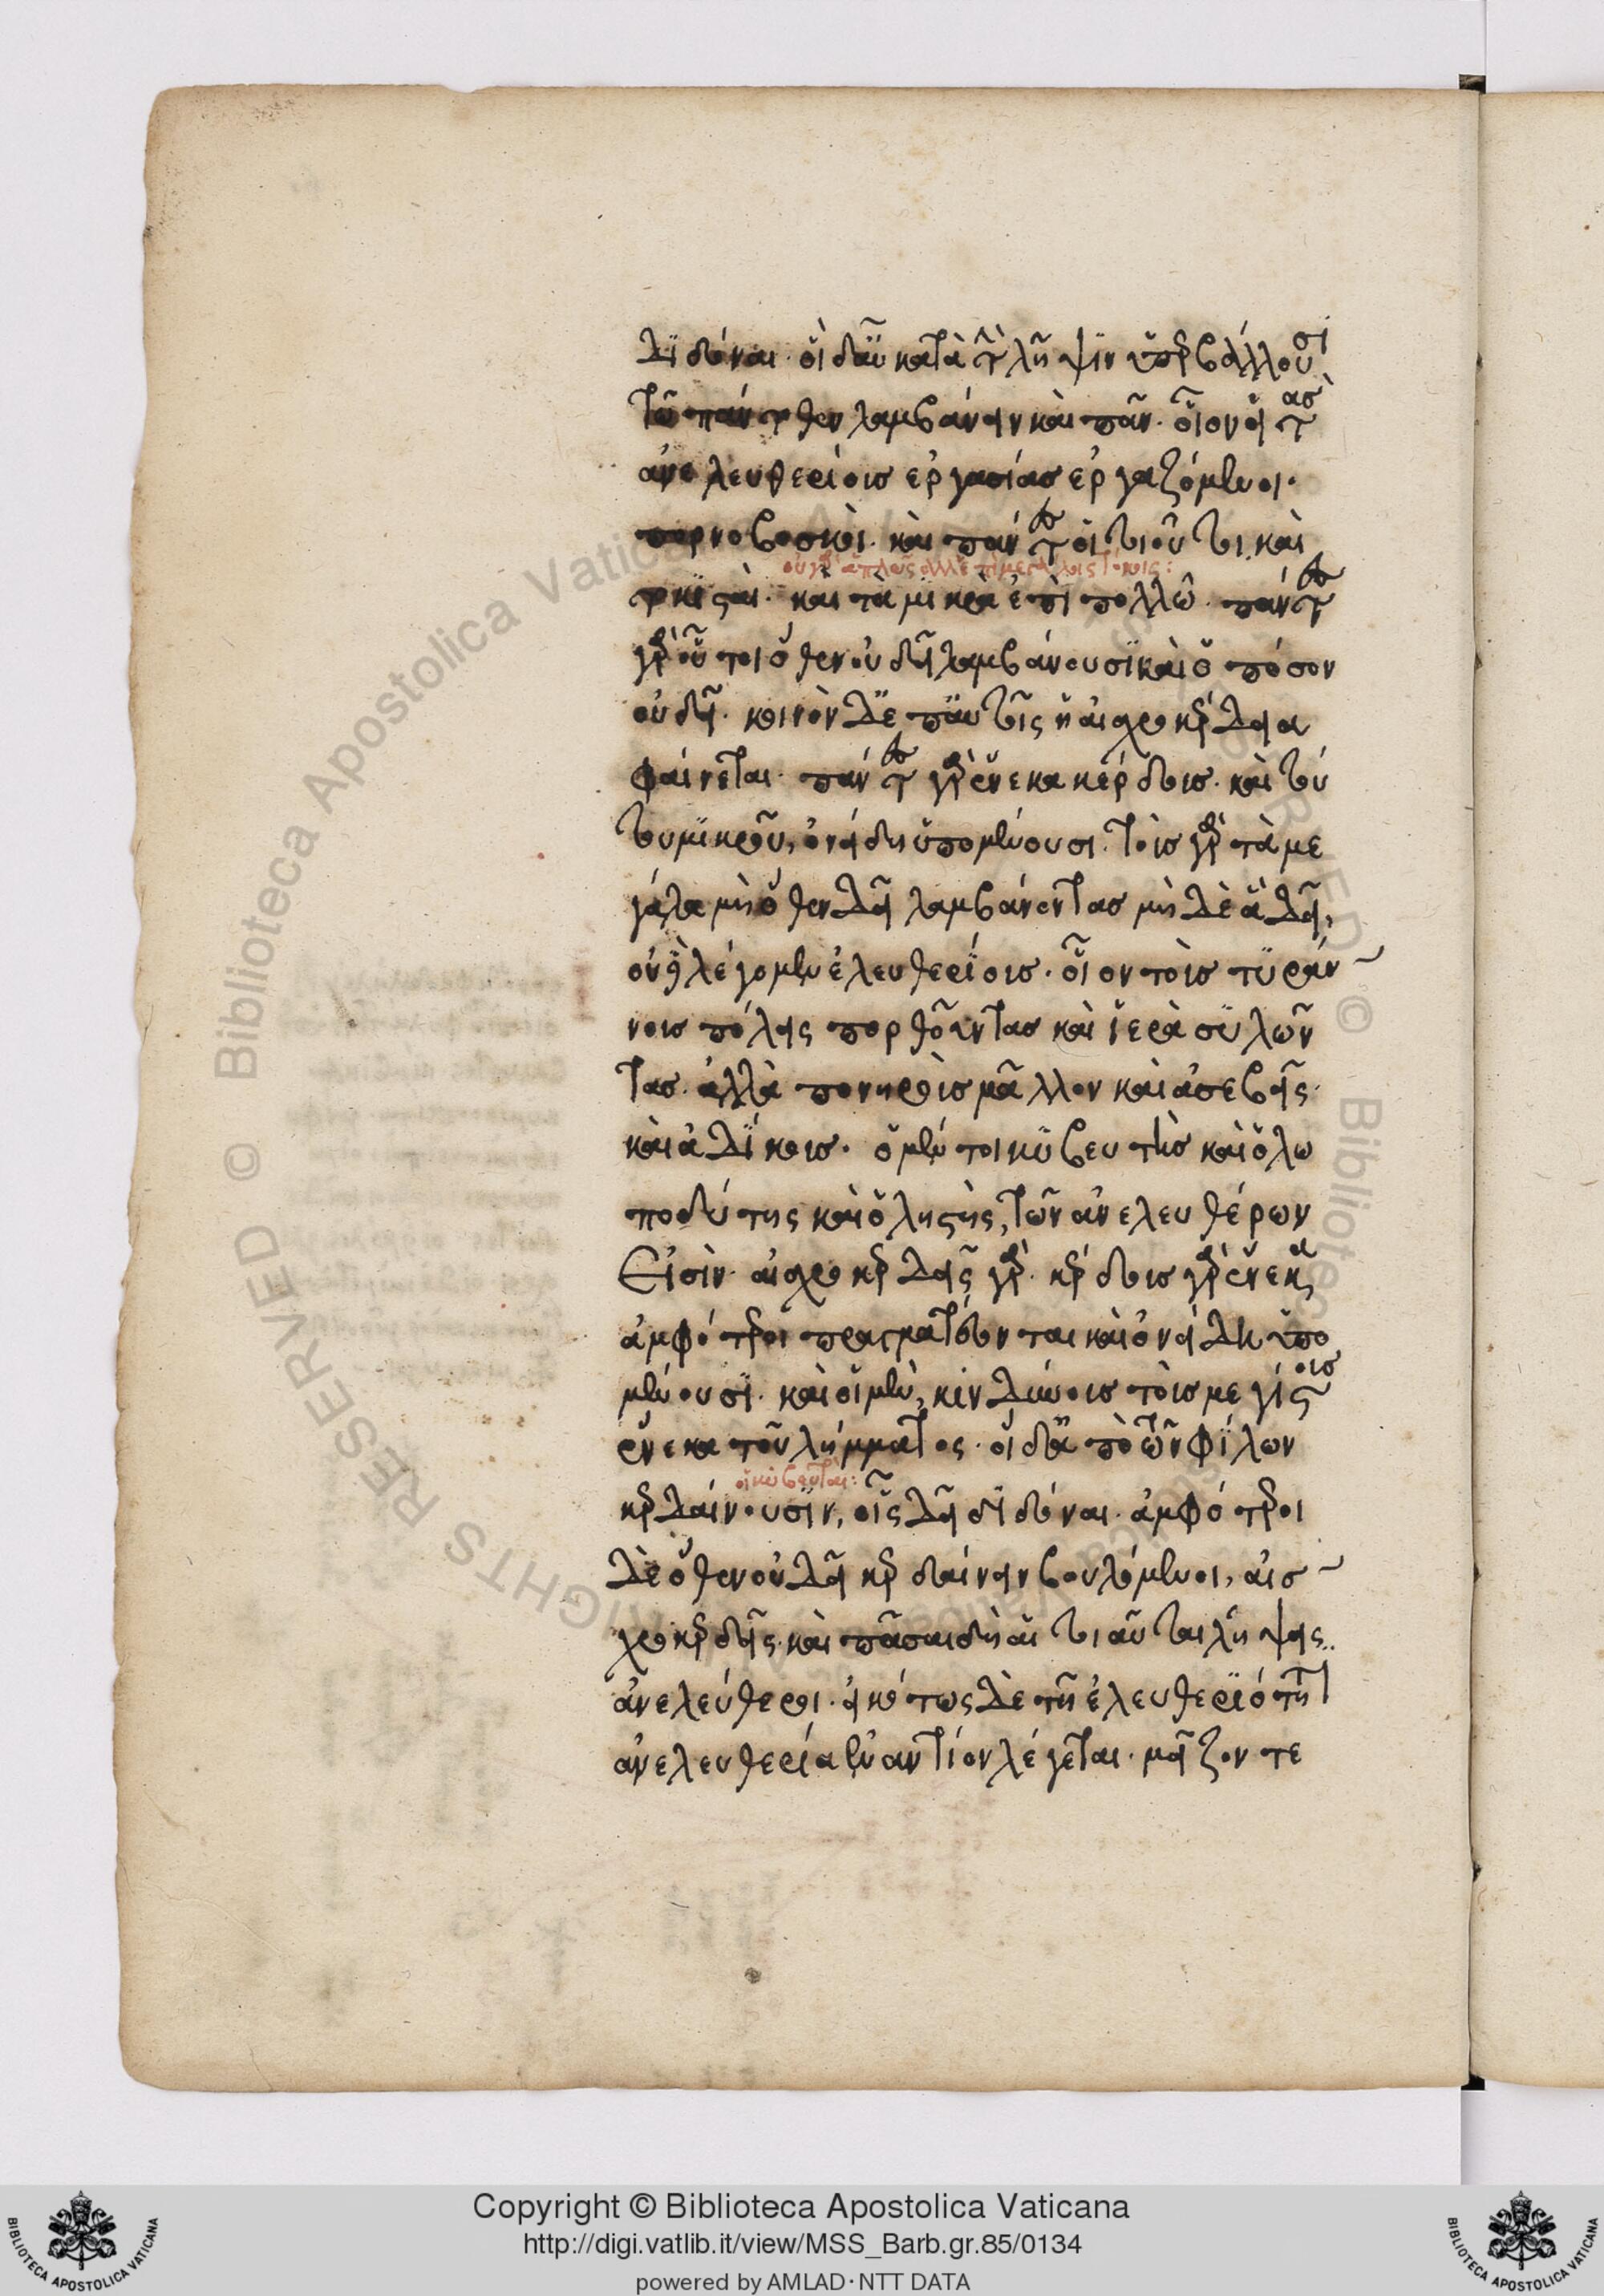 διδόναι· οἱ δ' αὖ κατὰ τὴν λῆψιν ὑπερβάλλουσι
τῶ πάντοθεν λαμβάνειν καὶ πᾶν· οἷον οἱ τὰς
ἀνελευθερίοις ἐργασίας ἐργαζόμενοι·
πορνοβοσκοὶ· καὶ πάντες οἱ τοιοῦτοι καὶ
οὐ γὰρ ἁπλῶς ἀλλ' ἐπὶ μεγάλοις τόκοις:
τοκισταὶ· καὶ τὰ μικρὰ ἐπὶ πολλῶ· πάντες
γὰρ οὗτοι ὅθεν οὐ δεῖ λαμβάνουσι καὶ ὁπόσον
οὐ δεῖ· κοινὸν δὲ ἐπ' αὐτοῖς ἡ αἰσχροκέρδεια
φαίνεται· πάντες γὰρ ἕνεκα κέρδους· καὶ τού
του μικροῦ, ὀνείδη ὑπομένουσι· τοὺς γὰρ τὰ με
γάλα μὴ ὅθεν δεῖ λαμβάνοντας μὴ δὲ ἃ δεῖ,
οὐ λέγομεν ἐλευθερίοις· οἷον τοὺς τυράν
νους πόλεις πορθοῦντας καὶ ἱερὰ συλῶν
τας· ἀλλὰ πονηροὺς μᾶλλον καὶ ἀσεβεῖς·
καὶ ἀδίκους· ὁ μέν τοι κυβευτὴς καὶ ὁ λω
ποδύτης καὶ ὁ ληστὴς, τῶν ἀνελευθέρων
εἰσὶν· αἰσχροκερδεῖς γὰρ· κέρδους γὰρ ἕνεκα
ἀμφότεροι πραγματεύονται καὶ ὀνείδη ὑπο
μένουσι· καὶ οἱ μὲν, κινδύνους τοὺς μεγίστους
ἕνεκα τοῦ λήμματος· οἱ δ' ἀπὸ τῶν φίλων
οἱ κυβευταὶ:
κερδαίνουσιν, οἷς δεῖ διδόναι· ἀμφότεροι
δὲ ὅθεν οὐ δεῖ κερδαίνειν βουλόμενοι, αἰσ
χροκερδεῖς· καὶ πᾶσαι δὴ αἱ τοιαῦται λήψεις
ἀνελεύθεροι· εἰκότως δὲ τῆ ἐλευθεριότητι
ἀνελευθερία ἐναντίον λέγεται· μεῖζον τε
Copyright © Biblioteca Apostolica Vaticana
http://digi.vatlib.it/view/MSS_Barb.gr.85/0134
powered by AMLAD·NTT DATA